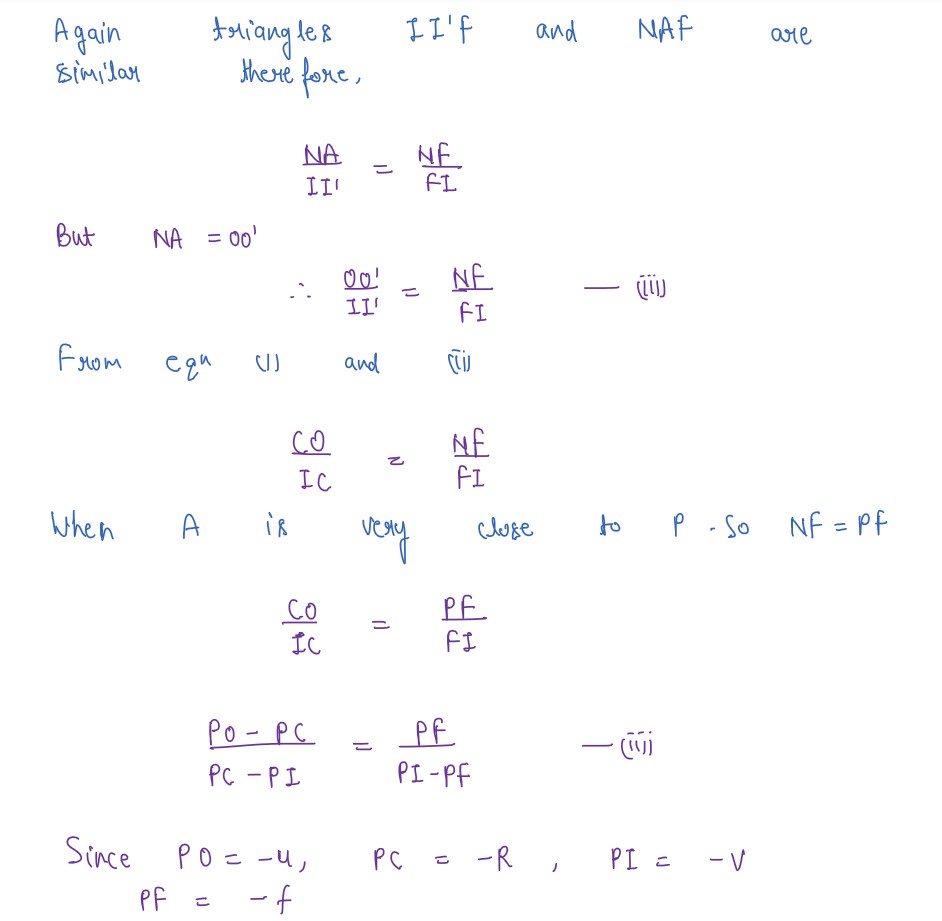 Again triangles II'f and NAF are
similar therefore,
NA/II' = NF/FI
But NA = OO'
∴ OO'/II' = NF/FI — (iii)
From eqn (1) and (ii)
CO/IC = NF/FI
When A is very close to P . So NF = PF
CO/IC = PF/FI
PO - PC/PC - PI = PF/PI - PF — (iii)
Since PO = -u, PC = -R , PI = -V
PF = -f